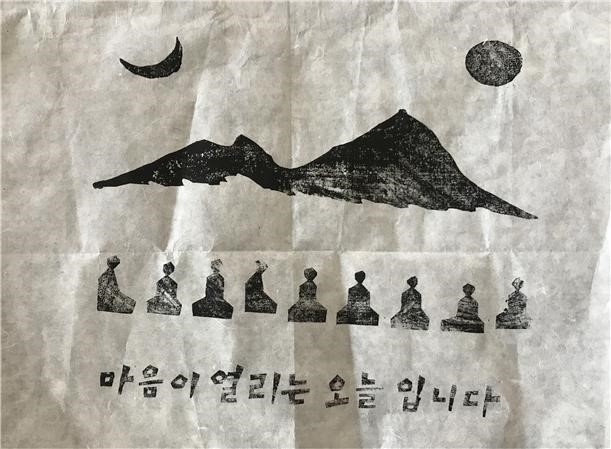 마음이 열리는 오늘 입니다